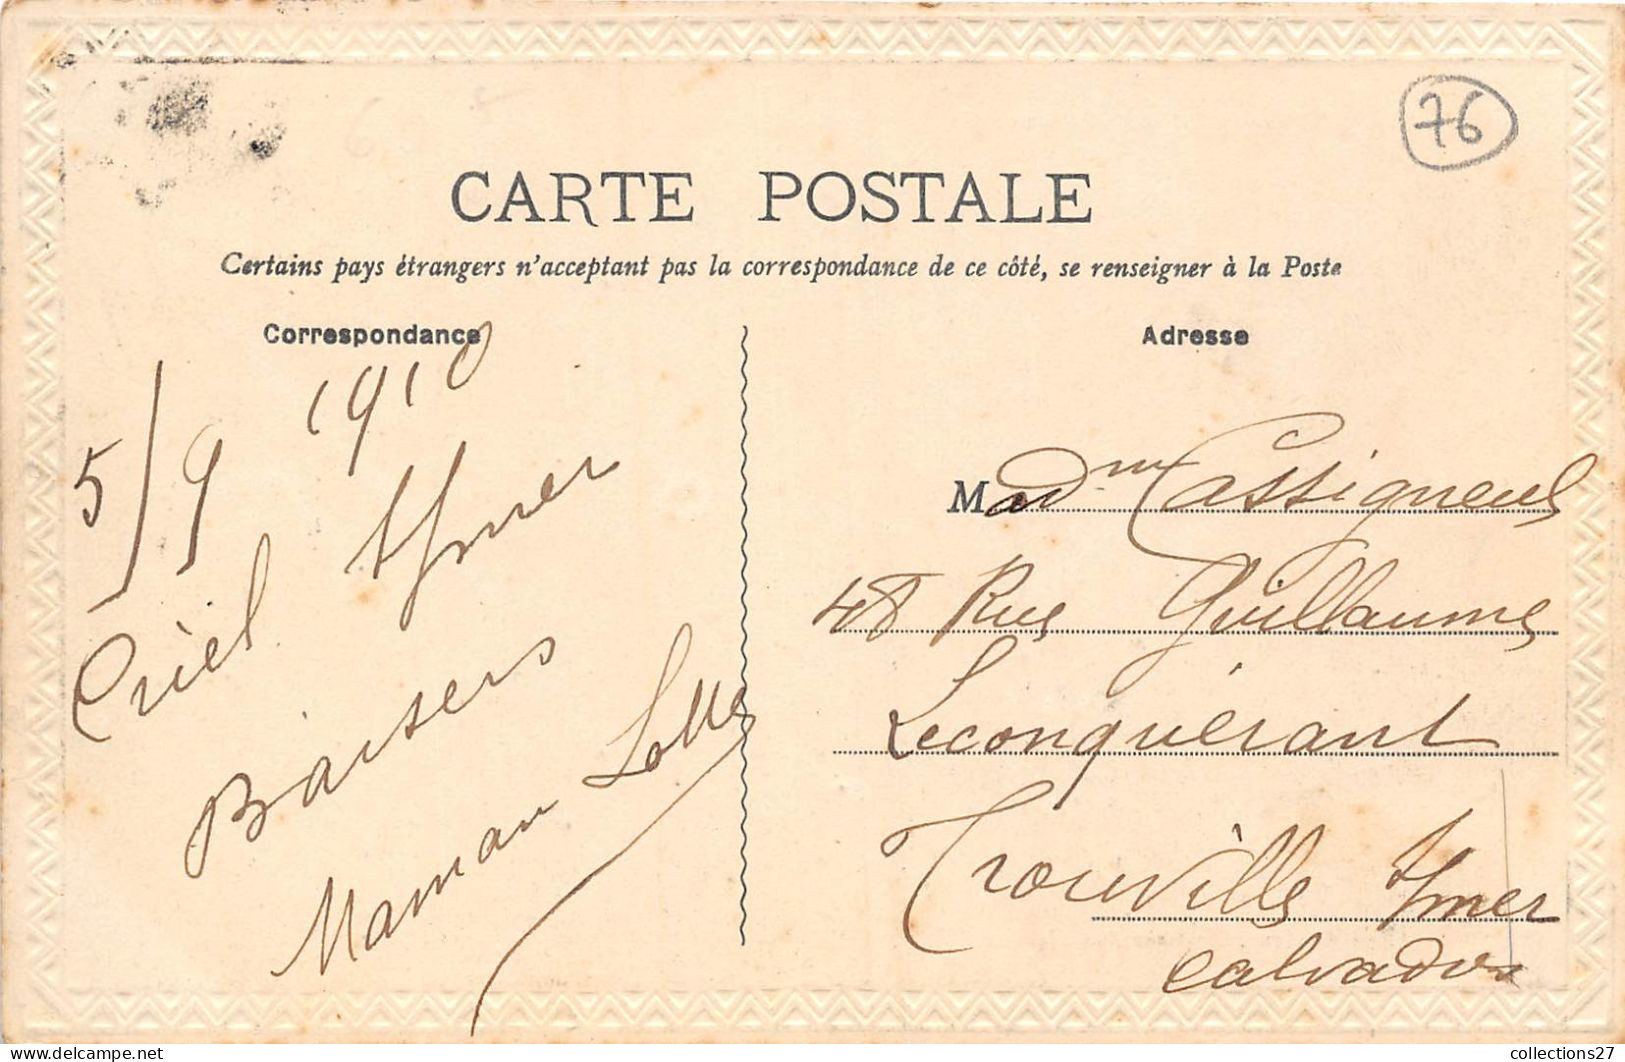 76
CARTE POSTALE
Certains pays étrangers n'acceptant pas la correspondance de ce côté, se renseigner à la Poste
Correspondance
5/9 1910
Criel s/mer
Baisers
Maman Lolle
Adresse
Madme Cassigneul
48 Rue Guillaume
Leconquérant
Trouville s/mer
Calvados
collections27